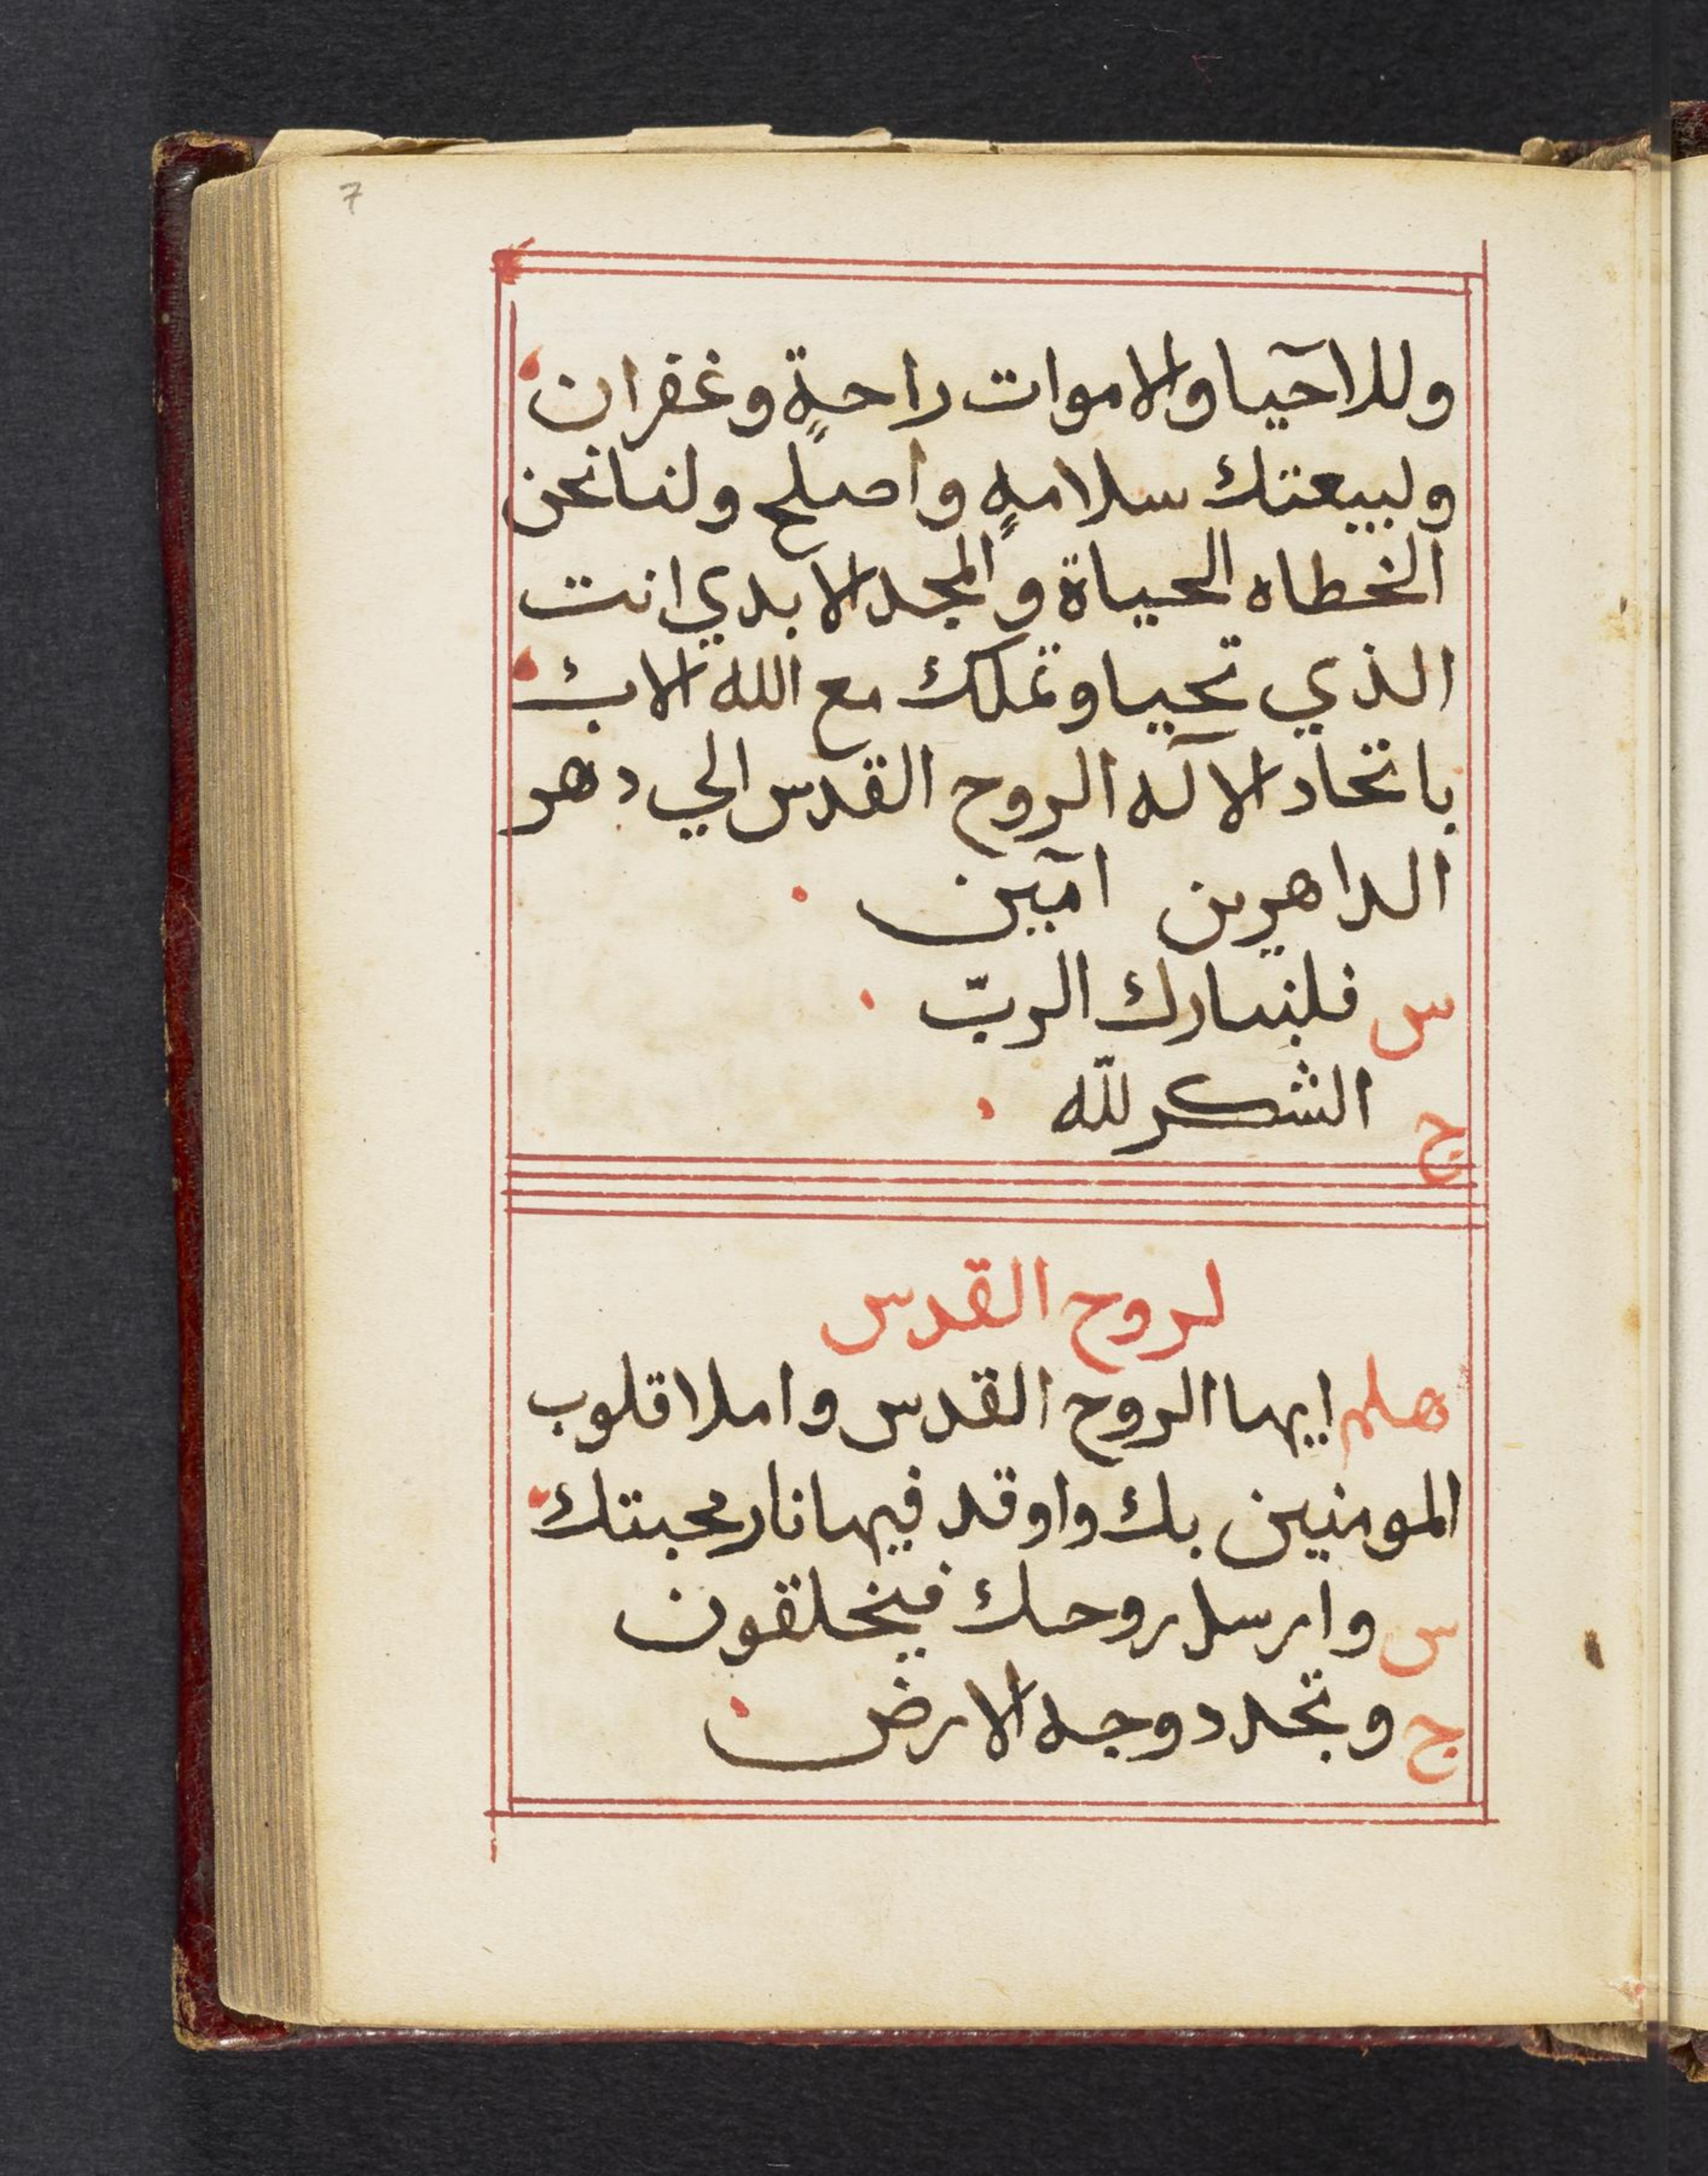 7
وللاحيا والاموات راحةٍ وغفران
ولبيعتك سلامهٍ واصلح ولنا نحن
الخطاه الحياة والمجد الابدي انت
الذي تحيا وتملك مع الله الاب
باتحاد الآله الروح القدس الي دهر
الداهرين امين
س فلنبارك الربّ
ج الشكر للّه
لروح القدس
هلم ايها الروح القدس واملا قلوب
المومنين بك واوقد فيها نار محبتك
س وارسل روحك فيخلقون
ج وتجدد وجه الارض